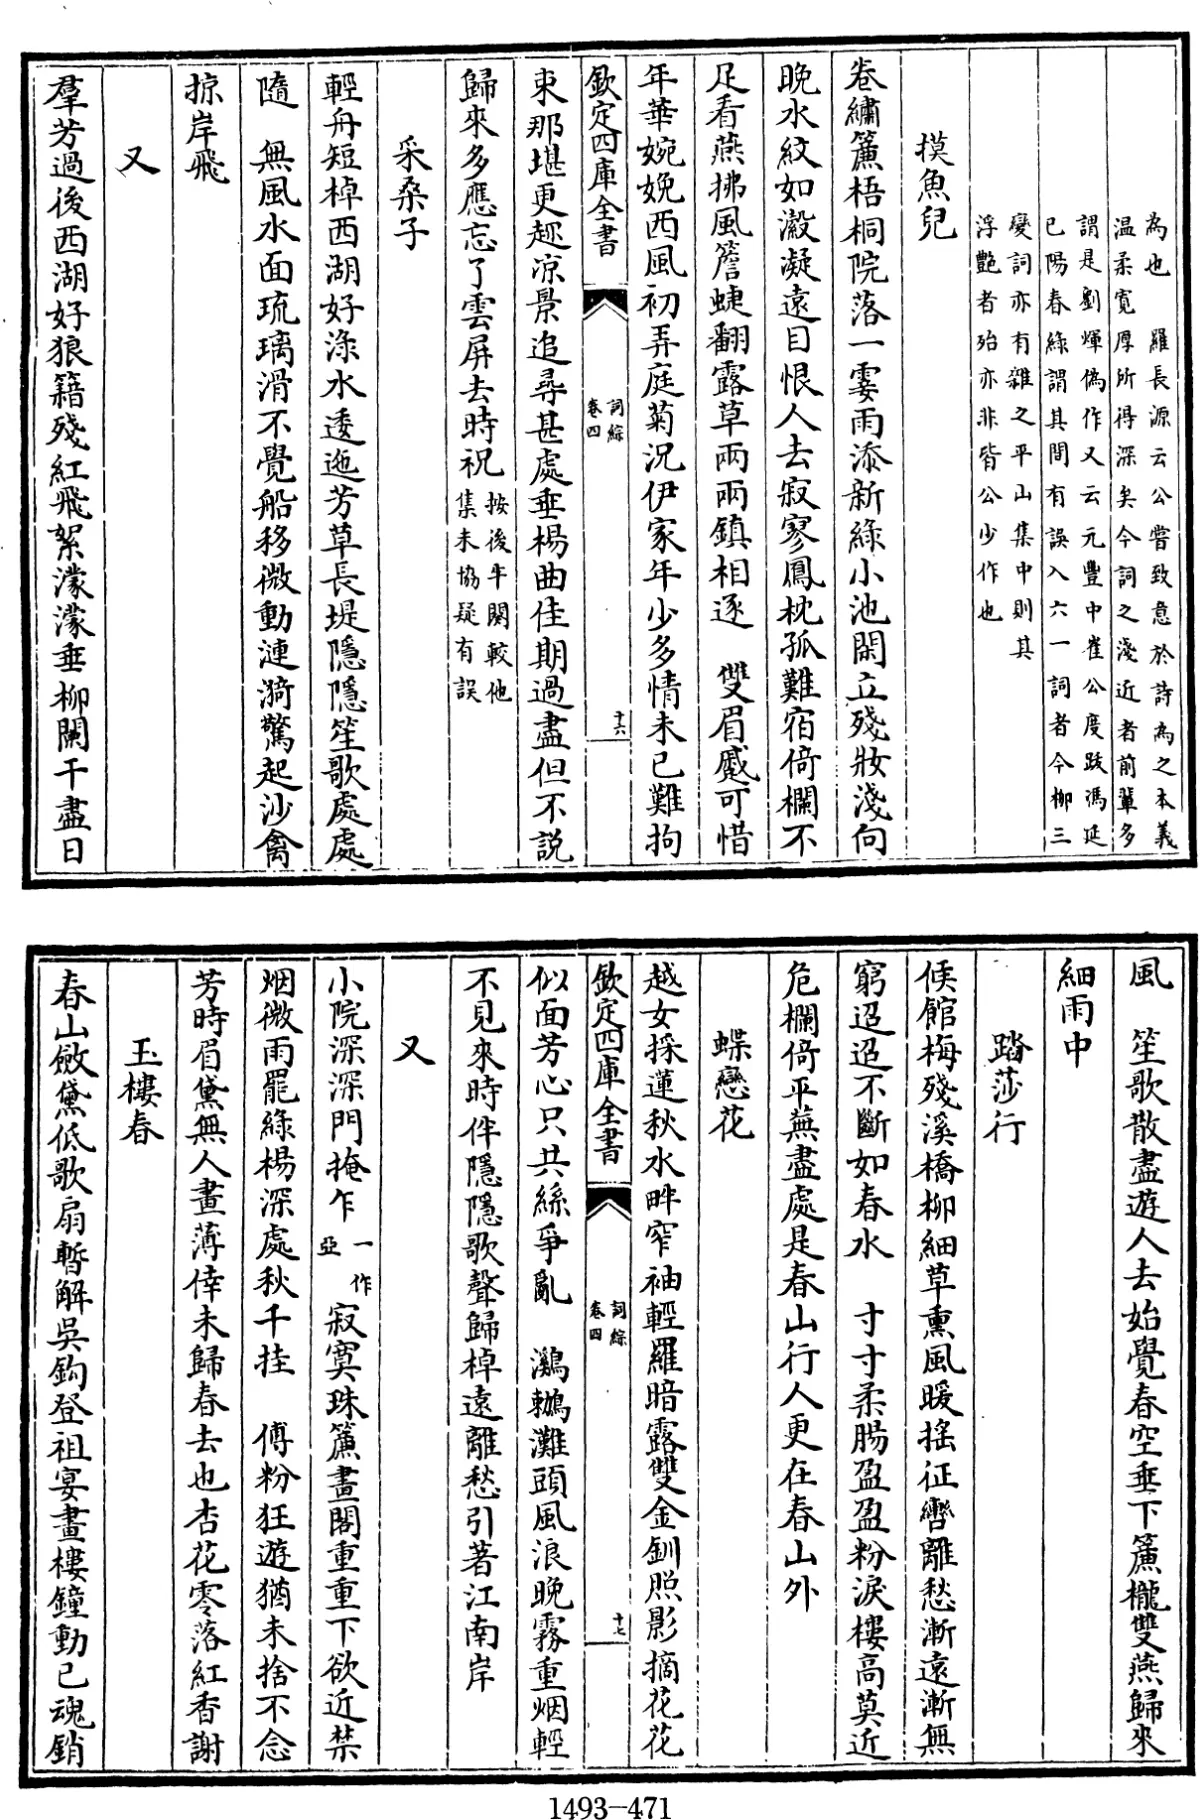 為也　羅長源云公嘗致意於詩為之本義
温柔寛厚所得深矣今詞之淺近者前輩多
謂是劉煇偽作又云元豐中崔公度跋馮延
已陽春錄謂其間有誤入六一詞者今柳三
變詞亦有雜之平山集中則其
浮艷者殆亦非皆公少作也
摸魚兒
卷繡簾梧桐院落一霎雨添新綠小池閑立殘妝淺向
晚水紋如縠凝遠目恨人去寂寥鳳枕孤難宿倚欄不
足看燕拂風簷蜨翻露草兩兩鎮相逐　雙眉蹙可惜
年華婉娩西風初弄庭菊況伊家年少多情未已難拘
欽定四庫全書　詞綜卷四　十六
束那堪更趂涼景追尋甚處垂楊曲佳期過盡但不説
歸來多應忘了雲屏去時祝按後半闋較他集未協疑有誤
采桑子
輕舟短棹西湖好淥水逶迤芳草長堤隱隱笙歌處處
隨　無風水面琉璃滑不覺船移微動漣漪驚起沙禽
掠岸飛
又
羣芳過後西湖好狼籍殘紅飛絮濛濛垂柳闌干盡日
風　笙歌散盡遊人去始覺春空垂下簾櫳雙燕歸來
細雨中
踏莎行
候館梅殘溪橋柳細草熏風暖搖征轡離愁漸遠漸無
窮迢迢不斷如春水　寸寸柔腸盈盈粉淚樓高莫近
危欄倚平蕪盡處是春山行人更在春山外
蝶戀花
越女採蓮秋水畔窄袖輕羅暗露雙金釧照影摘花花
欽定四庫全書　詞綜卷四　十七
似面芳心只共絲爭亂　鸂鶒灘頭風浪晚霧重烟輕
不見來時伴隱隱歌聲歸棹遠離愁引著江南岸
又
小院深深門掩乍一作亞寂寞珠簾畫閣重重下欲近禁
烟微雨罷綠楊深處秋千挂　傅粉狂遊猶未捨不念
芳時眉黛無人畫薄倖未歸春去也杏花零落紅香謝
玉樓春
春山斂黛低歌扇暫解吳鉤登祖宴畫樓鐘動已魂銷
1493—471